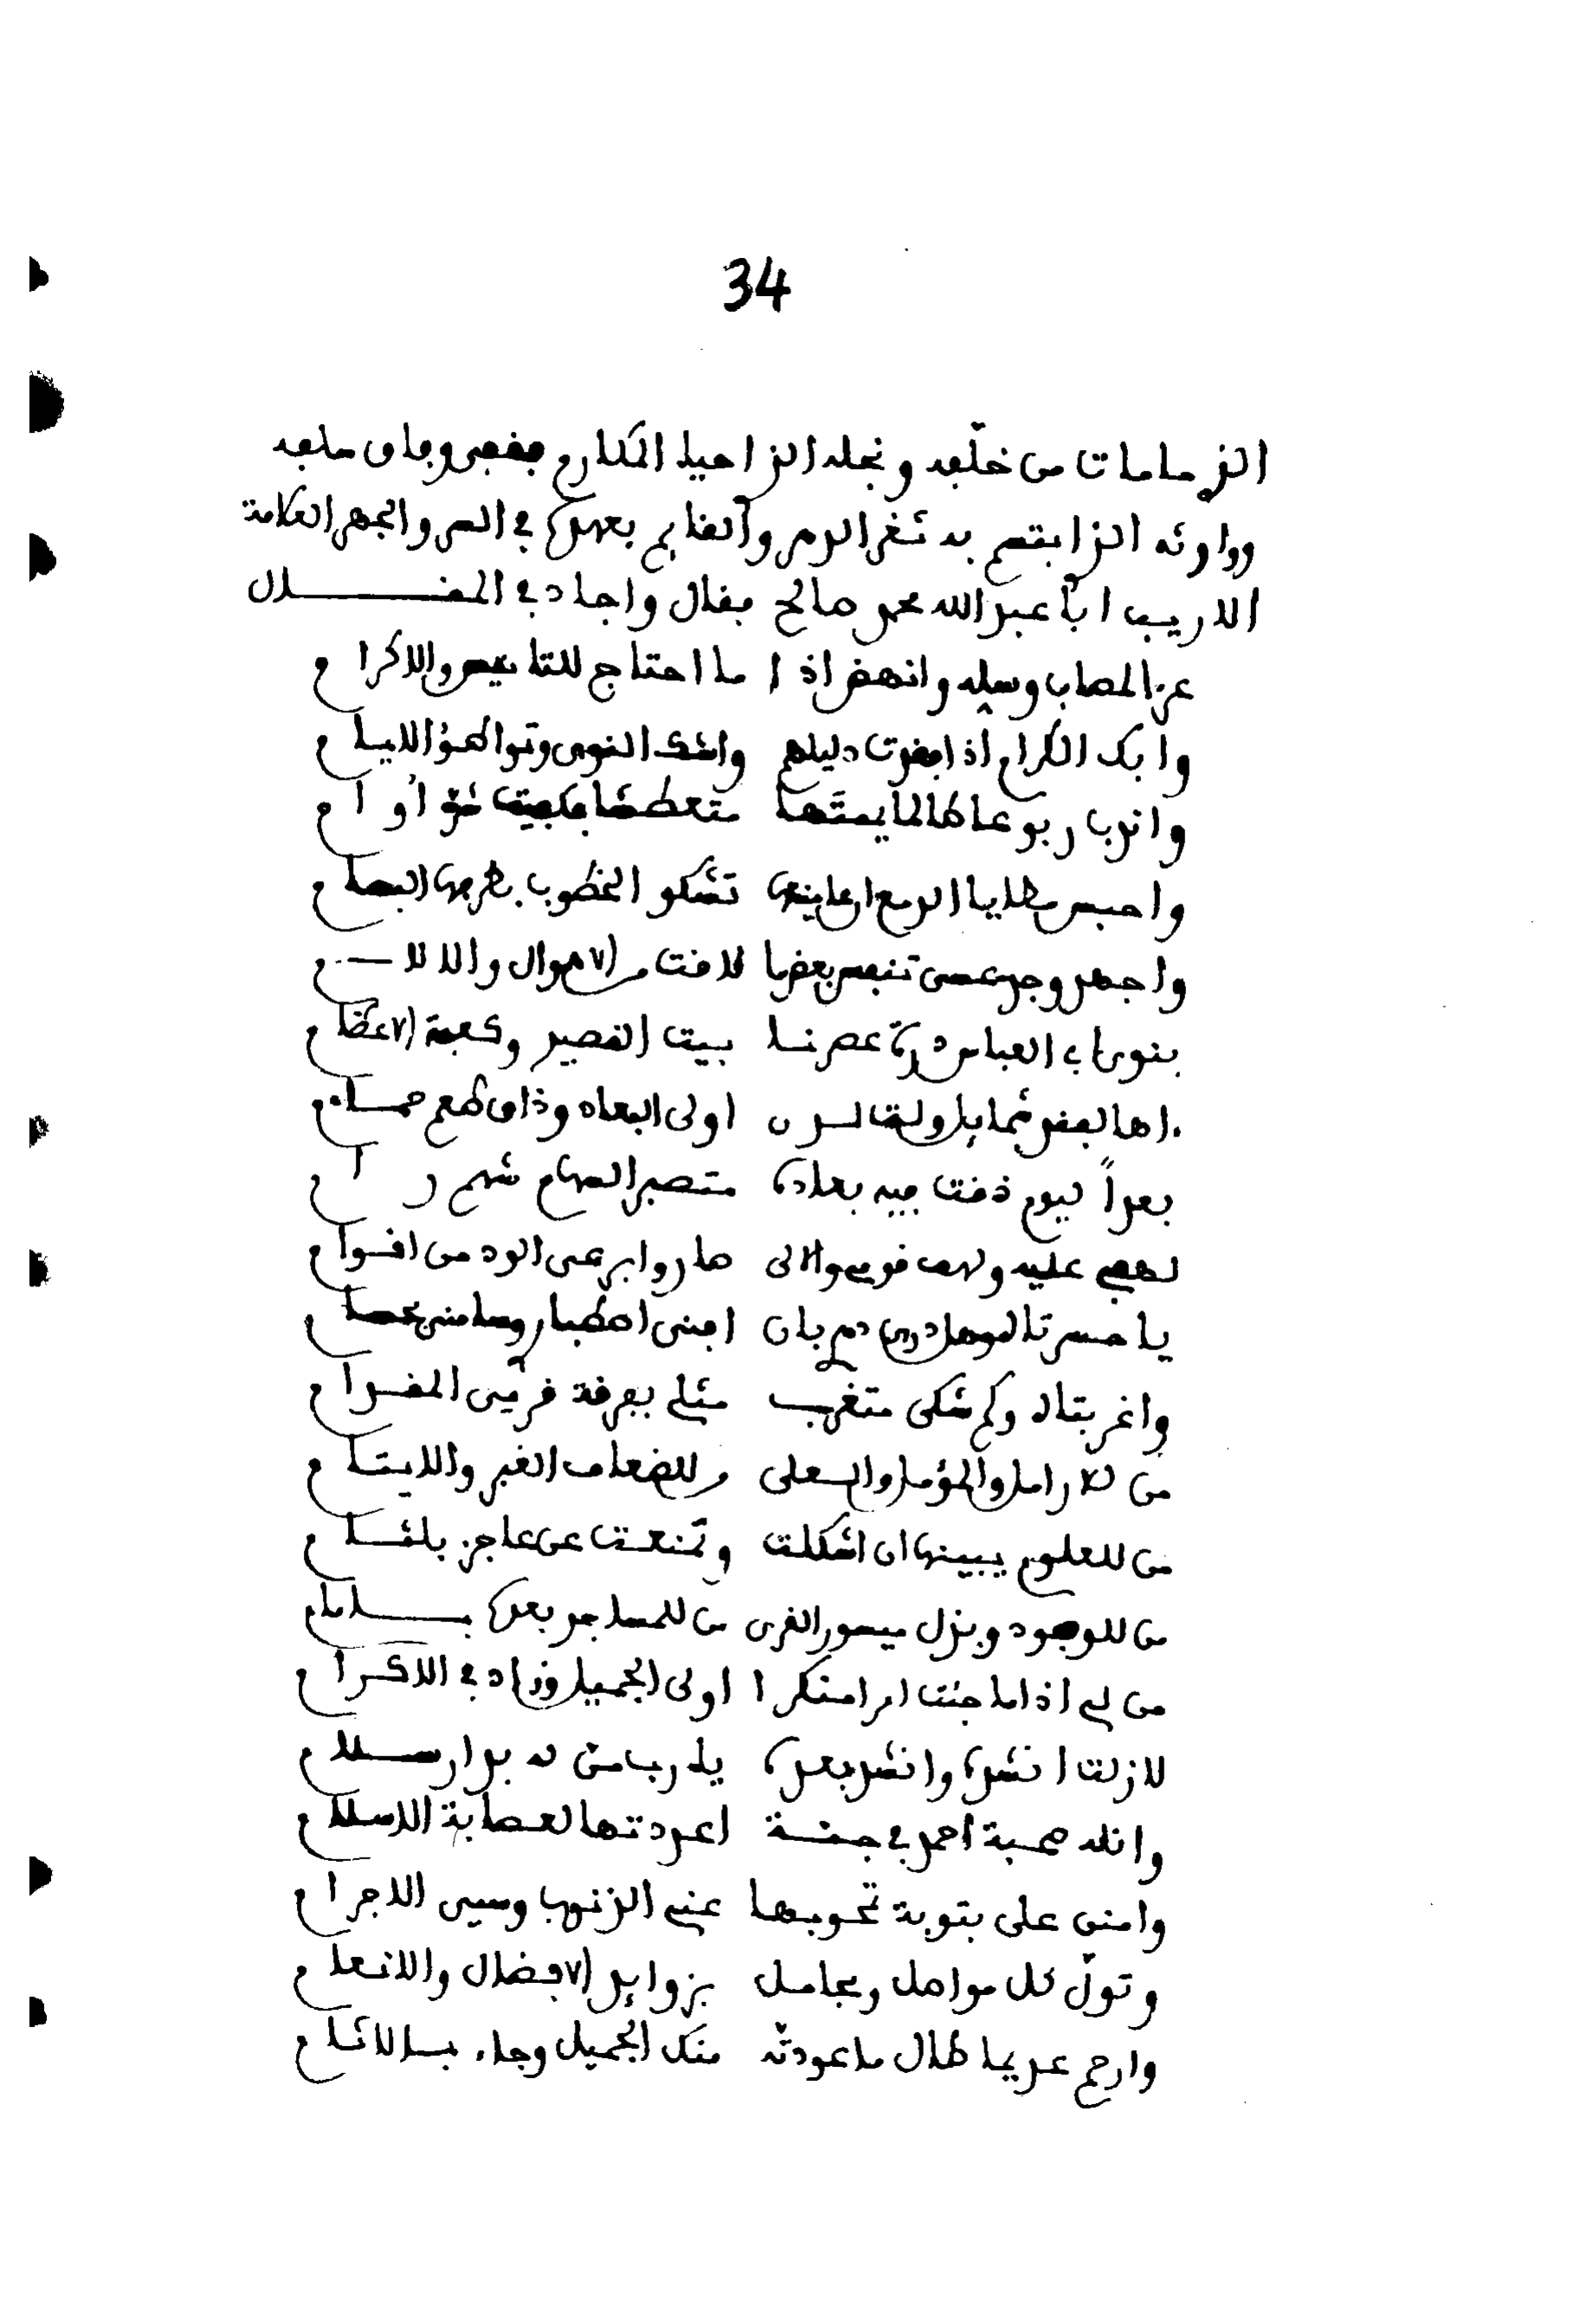 34
الذي ما مات من خلّفه ونجله الذي احيا المكارم وفاق سلفه
ووارثه الذي ابتسم به ثغر الدهر والقايم بعهده في السر والجهر العلامة
الاريب ابا عبد الله محمد صالح فقال واجاد في المقال
عز المصاب وسله وانهض اذا ما احتاج للتانيس والاكرام
وابك الكرام اذا فقدت دليلهم واشك النوى وتوالي الايام
واندب ربوعا طالما يممتها متعطشا فكفيت شر أوام
واحبس مطايا الدمع في تشكو الخطوب بطرفها البسام
واجهد وجد عسى تنفس بعض ما لاقت من الاهوال والالام
بنوى ابي العباس درة عصرنا بيت القصيد وكعبة الاعظام
اولى البعاد وذاق طعم حمام
بعداً ليوم ذقت فيه بعاده متصبرا لسهام شهم رام
لهفي عليه ولهف قومي والالى صاروا برعي الود من اقوام
يا حسرتا لو هل درى دهم بان افنى اصطباري وسامني بحسام
واغربتاه وكم شكى متغرب مثلي بفرقة قرمي المقدام
من للارامل والمؤمل والعلى من للضعاف الغبر والايتام
من للعلوم يبينها ان اشكلت وتمنعت عن عاجز بلثام
من للوفود وبذل ميسور القرى من للمساجد بعده بامام
من لي اذا ما جئت امرا منكرا اولى الجميل وزاد في الاكرام
لا زلت انشده وانشد بعده يا رب من له بدار سلام
وانله صحبة احمد في جنة اعددتها لعصابة الاسلام
وامنن علي بتوبة تمحو بها عني الذنوب وسيئ الاجرام
وتول كل مواصل ومجامل بزوايد الافضال والانعام
وارحم عديما طال ما عودته منك الجميل وجاء بالاثام